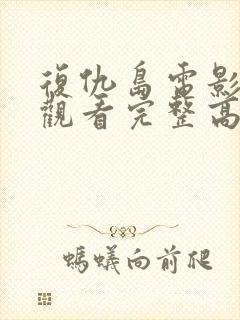 復仇島電影
觀看完整高
螞蟻向前爬